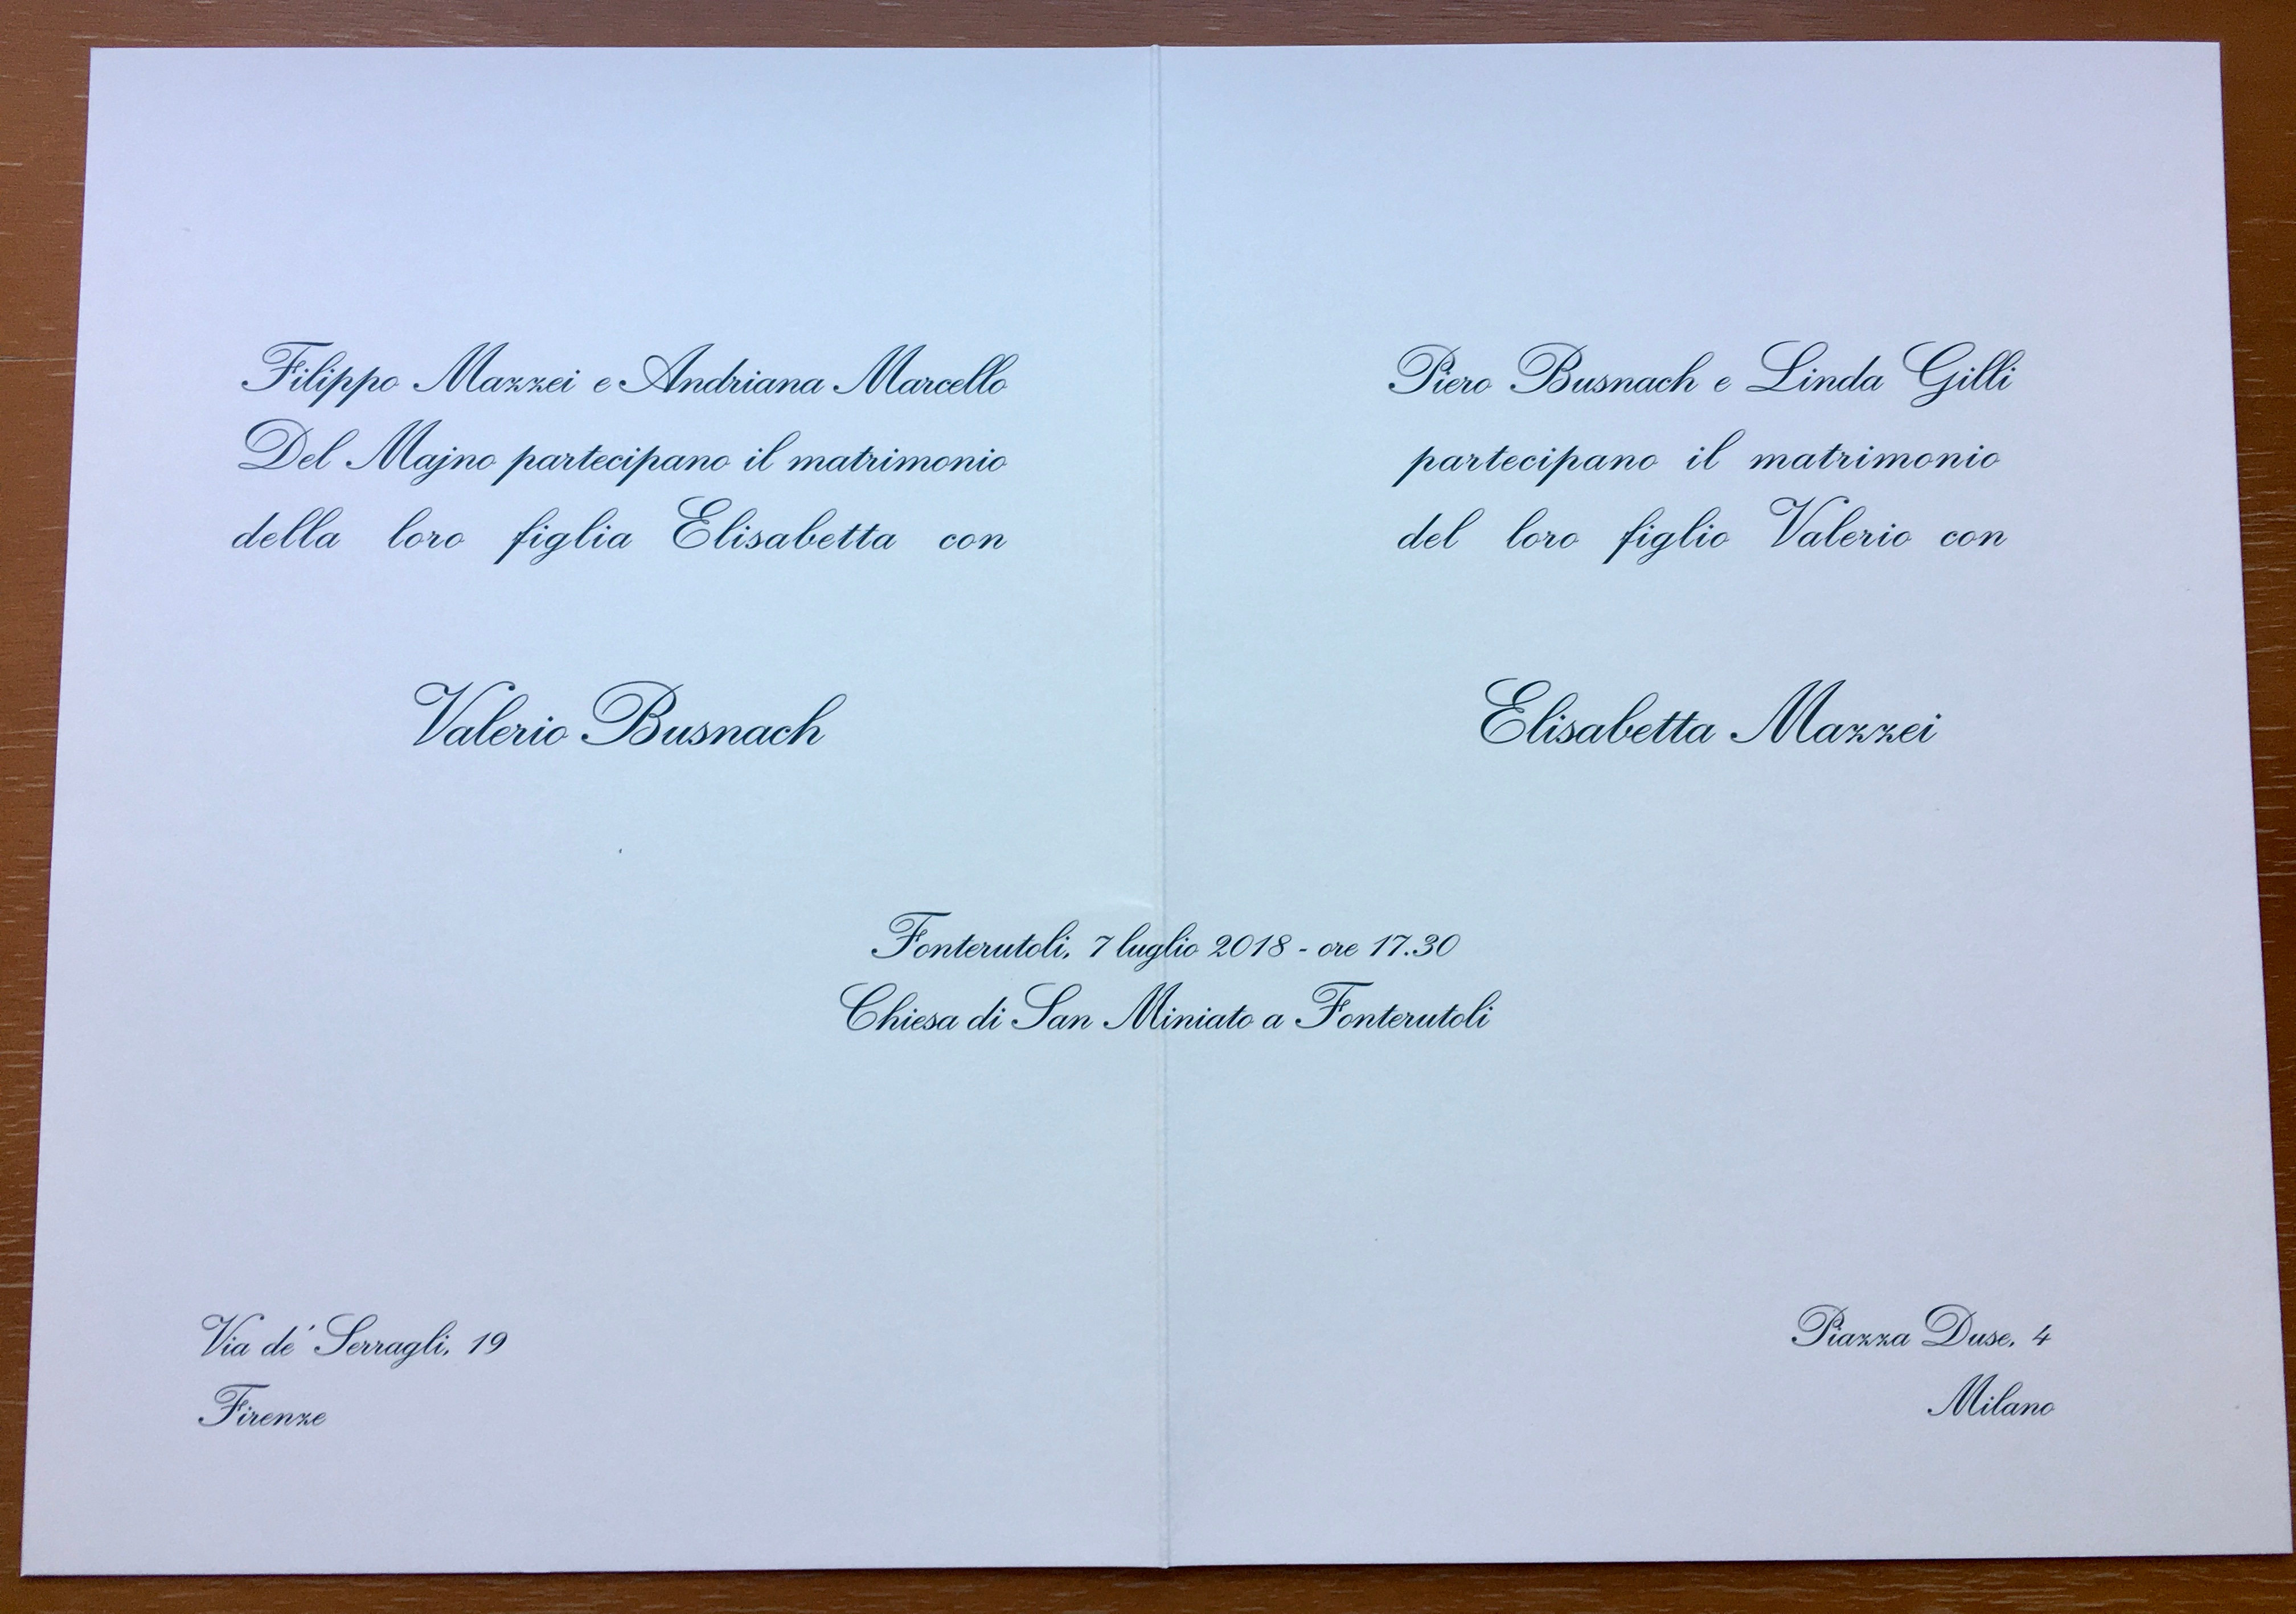 Filippo Mazzei e Andriana Marcello
Del Majno partecipano il matrimonio
della loro figlia Elisabetta con
Valerio Busnach
Piero Busnach e Linda Gilli
partecipano il matrimonio
del loro figlio Valerio con
Elisabetta Mazzei
Fonterutoli, 7 luglio 2018 - ore 17.30
Chiesa di San Miniato a Fonterutoli
Via de' Serragli, 19
Firenze
Piazza Duse, 4
Milano